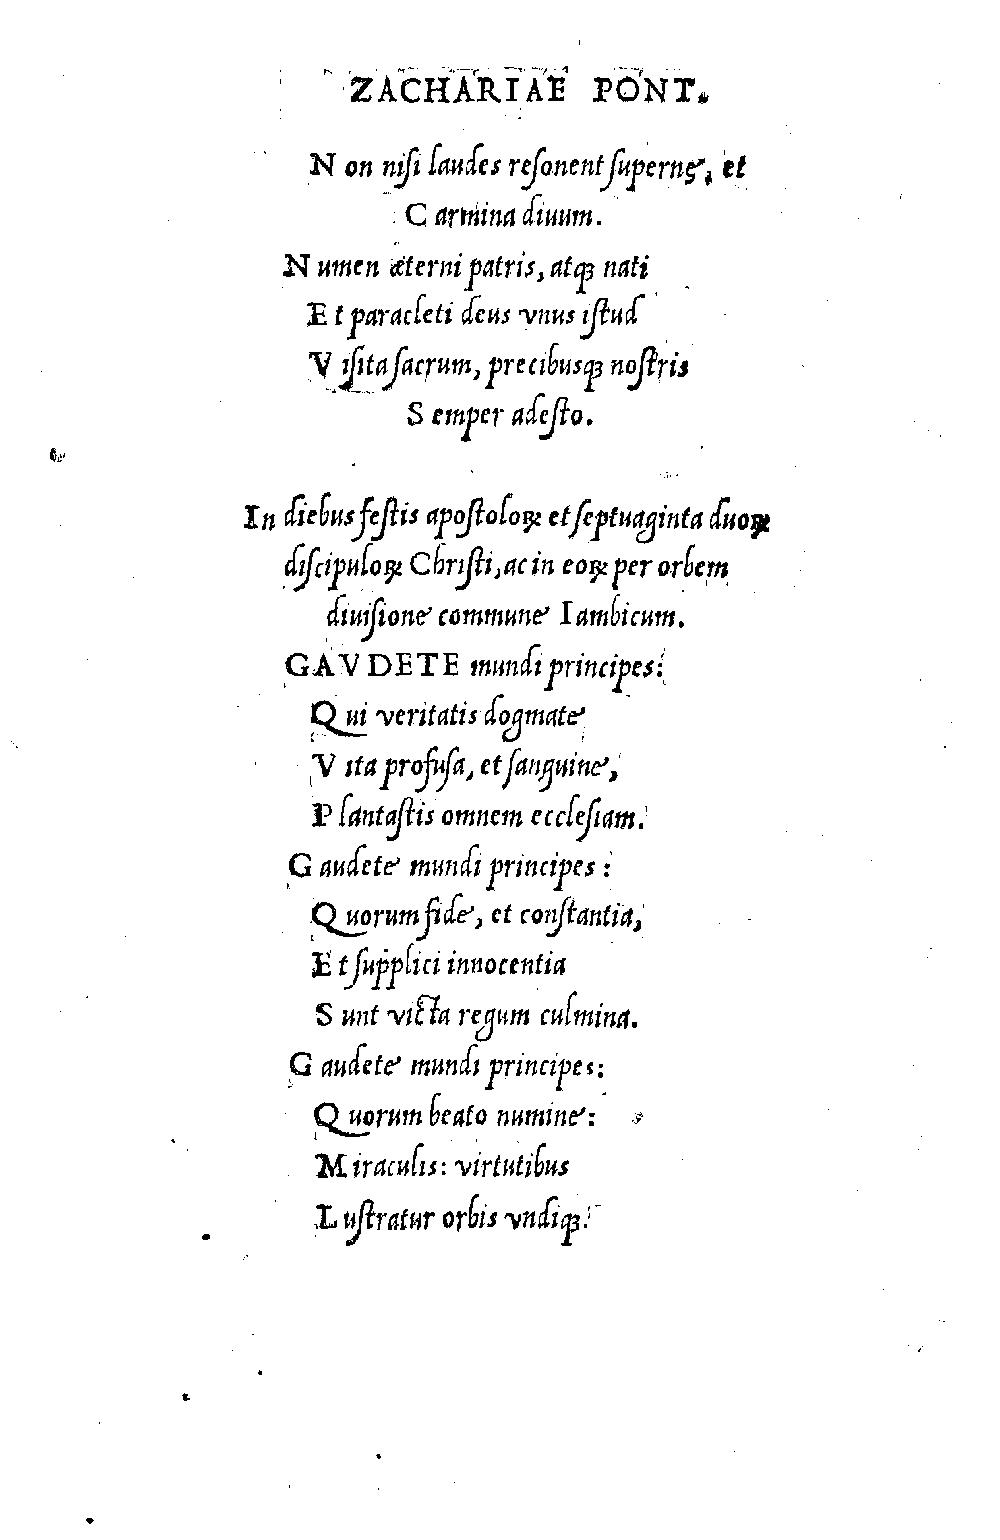 ZACHARIAE PONT.
Non niſi laudes reſonent ſupernę, et
Carmina diuum.
Numen æterni patris, atqꝫ nati
Et paracleti deus vnus iſtud
Viſita ſacrum, precibusqꝫ noſtris
Semper adeſto.
In diebus feſtis apoſtoloꝝ et ſeptuaginta duoꝝ
diſcipuloꝝ Chriſti, ac in eoꝝ per orbem
diuiſione commune Iambicum.
GAVDETE mundi principes:
Qui veritatis dogmate
Vita profuſa, et ſanguine,
Plantaſtis omnem eccleſiam.
Gaudete mundi principes:
Quorum fide, et conſtantia,
Et ſupplici innocentia
Sunt victa regum culmina.
Gaudete mundi principes:
Quorum beato numine:
Miraculis: virtutibus
Luſtratur orbis vndiqꝫ.